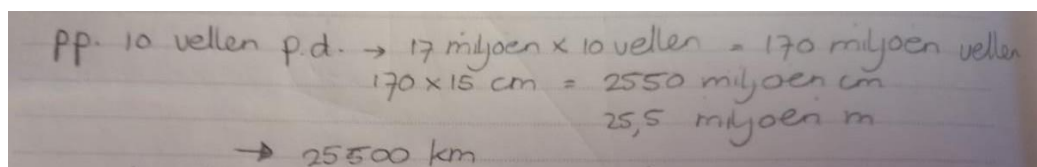 pp. 10 vellen p.d. → 17 miljoen x 10 vellen = 170 miljoen vellen
170 x 15 cm = 2550 miljoen cm
25,5 miljoen m
→ 25500 km